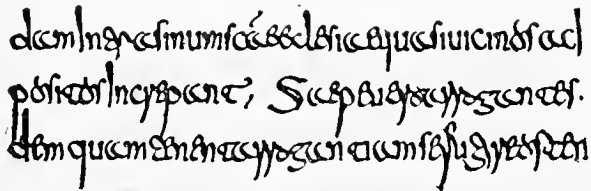 dam Intra sinum scae eclesiae quasi uicinos ad
positos Increpant; Saepe uero arrogantes.
dem quam tenent arrogantiam se fugire osten